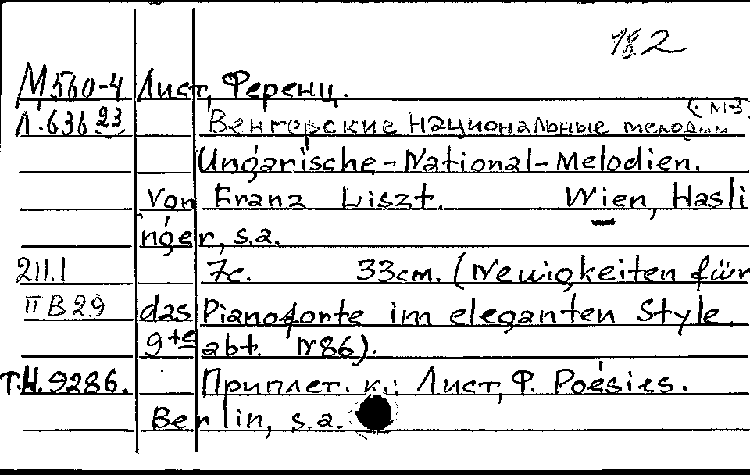 182
М560-4 Лист, Ференц.
Л.636 23 Венгерские национальные мелодии
Ungarische-National-Melodien.
von Franz Liszt. Wien, Hasli
nger, s.a.
211.1 7c. 33cm. (Neuigkeiten für
II B29 das Pianoforte im eleganten Style.
9te abt. N86).
Т.Н.9286. Приплет. к.: Лист, Ф. Poésies.
Berlin, s.a.